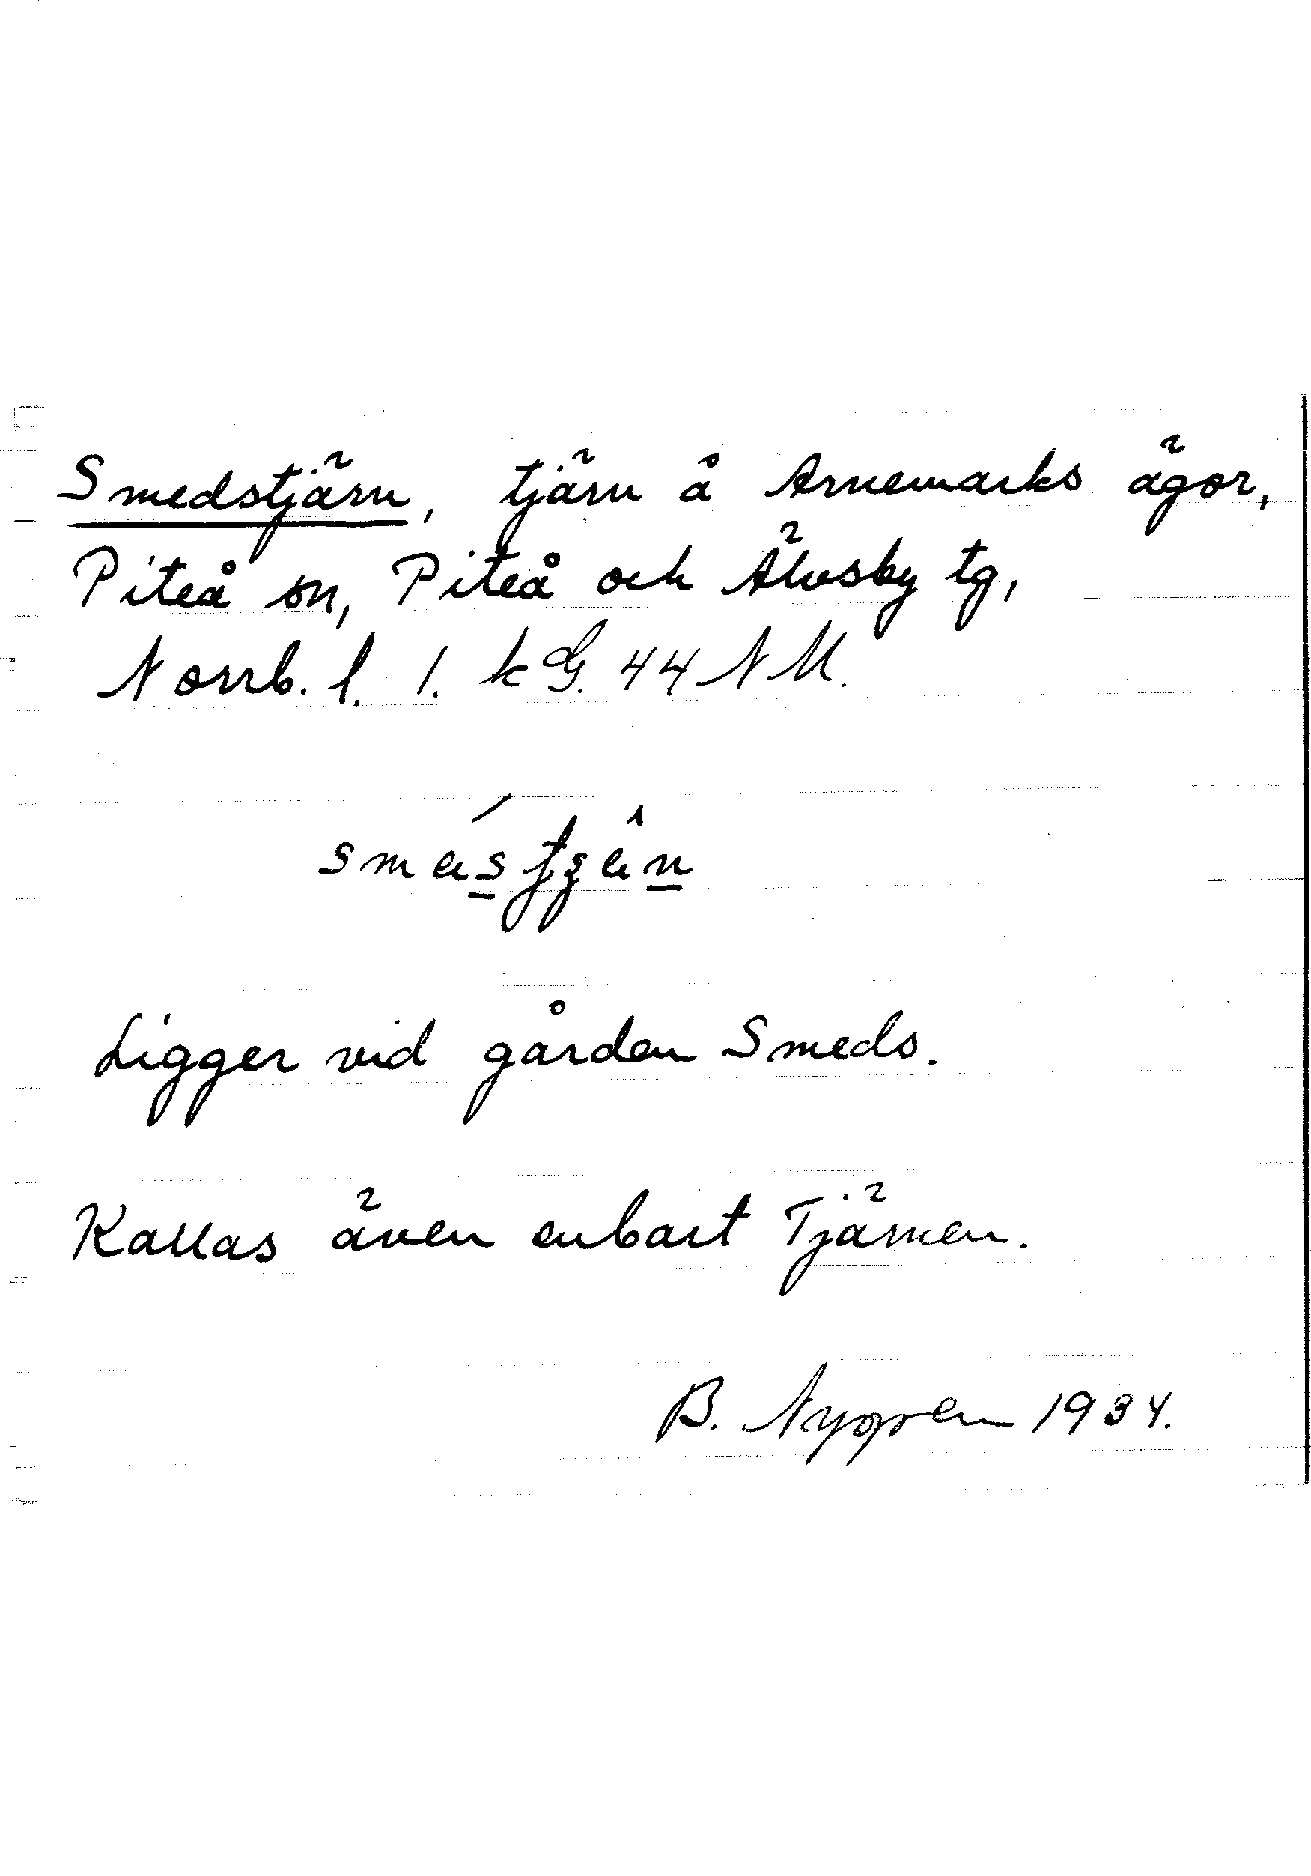 Smedstjärn, tjärn å Arnemarks ägor,
Piteå sn, Piteå och Älvsby tg,
Norrb. l. 1. kG. 44 NM.
Ligger vid gården Smeds.
Kallas även enbart Tjärnen.
B. Nygren 1934.